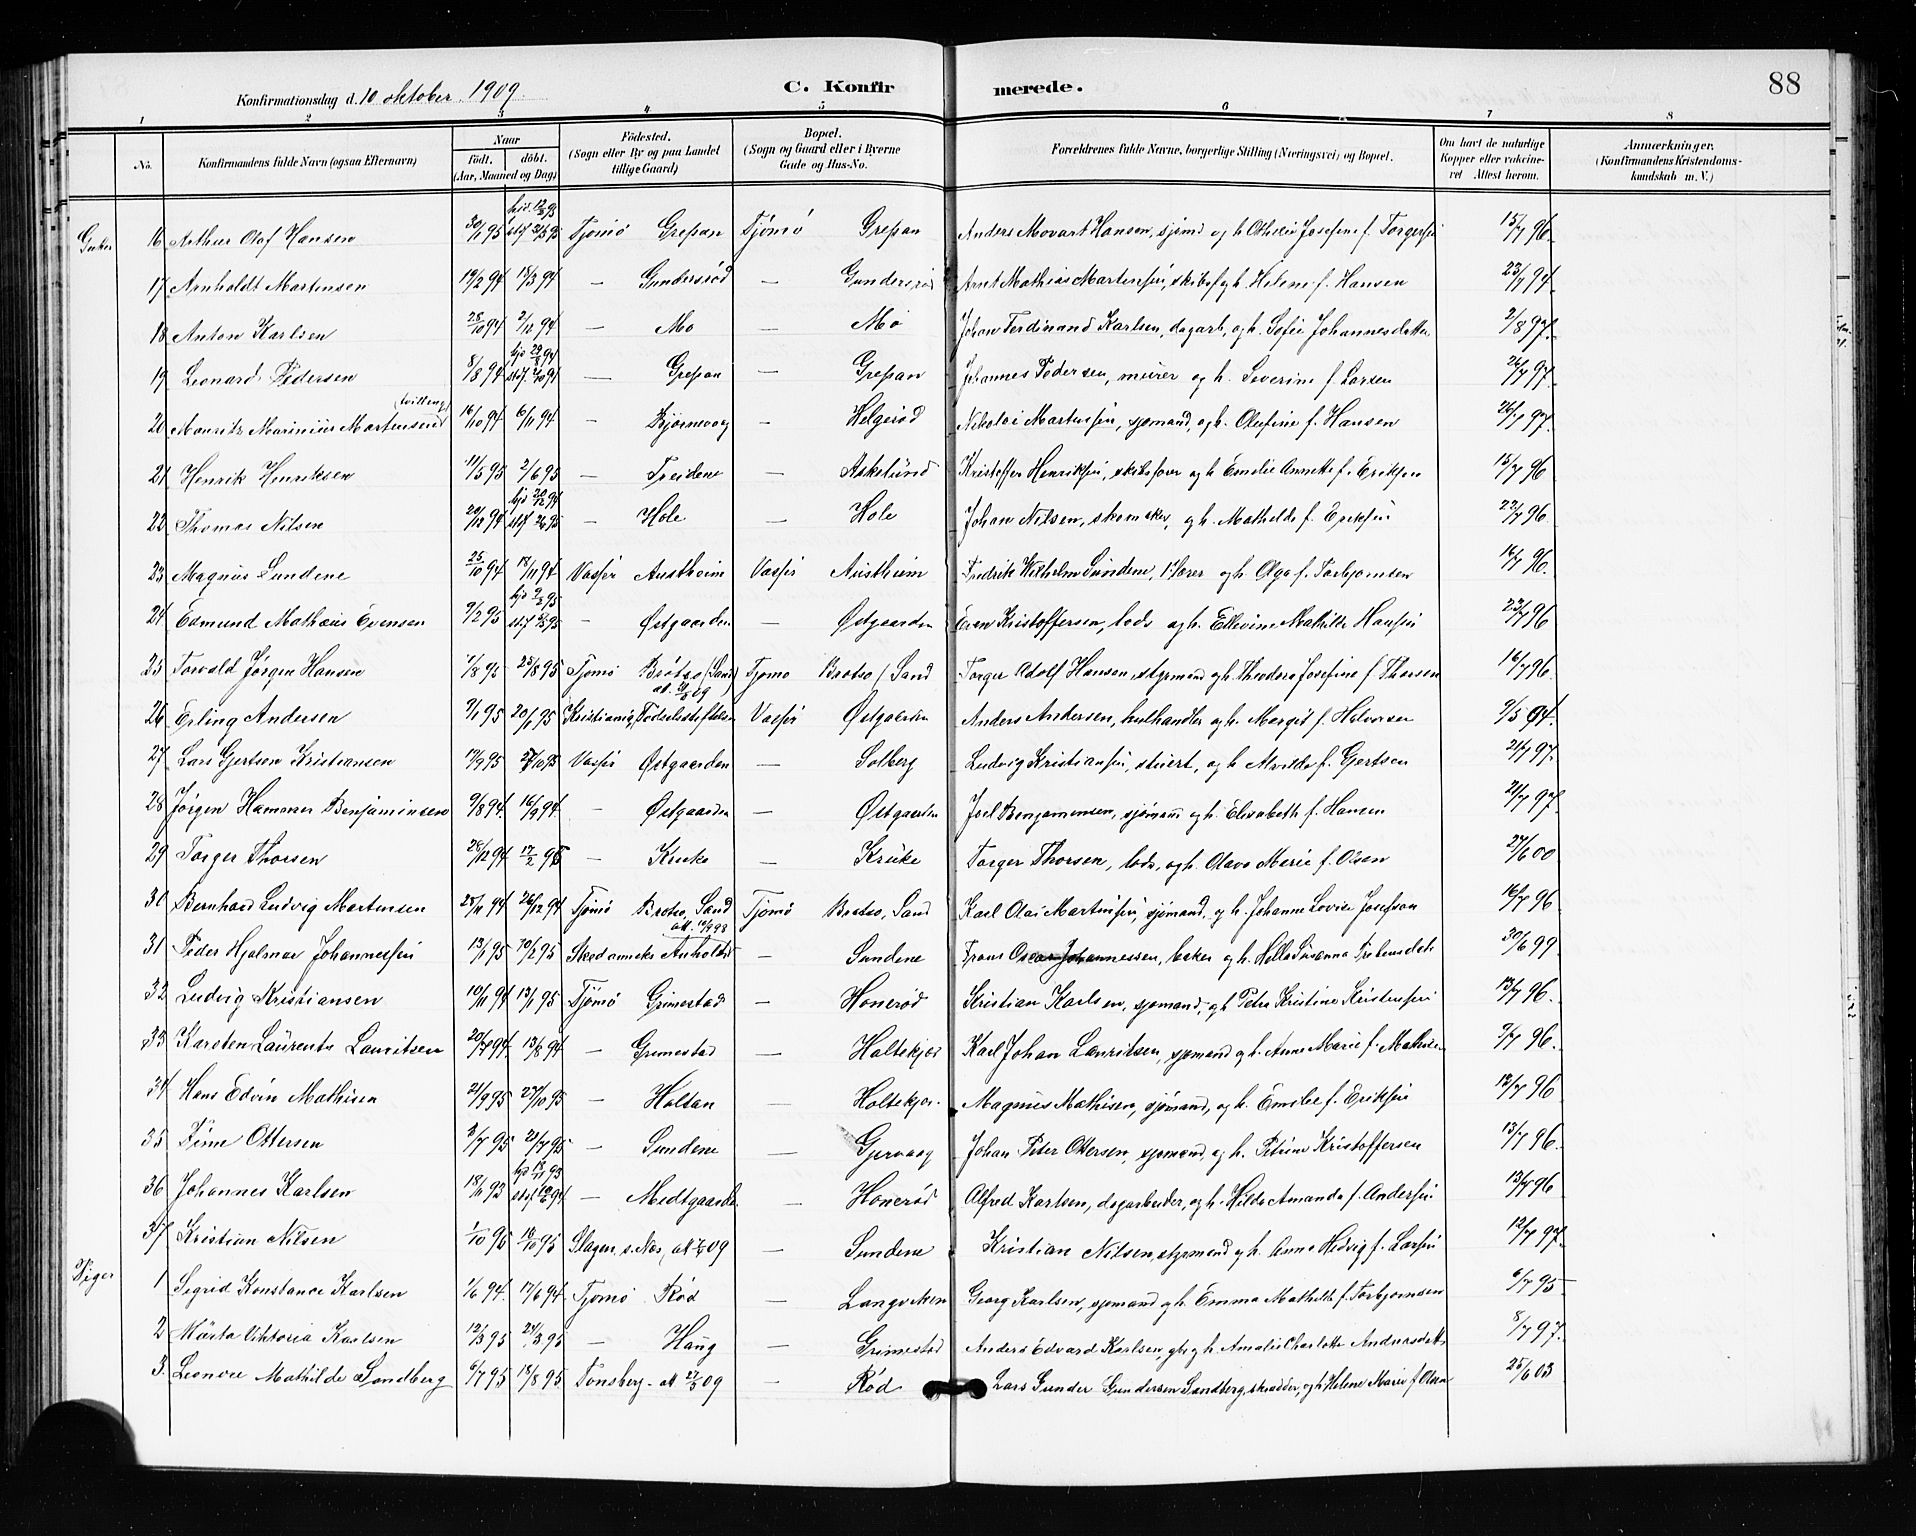 Konfirmationsdag d. 10 oktober 1909. C. Konfir merede. 88
1 2 3 4 5 6 7 8
No. Konfirmandens fulde Navn (ogsaa Efternavn) Naar födt. döbt. (Aar, Maaned og Dag) Födested. (Sogn eller By og paa Landet tillige Gaard) Bopæl. (Sogn og Gaard eller i Byerne Gade og Hus-No. Forældrenes fulde Navne, borgerlige Stilling (Næringsvei) og Bopæl. Om havt de naturlige Kopper eller vakcineret Attest herom. Anmerkninger. (Konfirmandens Kristendomskundskab m. V.)
Gutter 16 Arthur Olaf Hansen 30/1 95 hjd. stdf. Tjømø Grepan Tjømø Grepan Anders Movart Hansen, sjømd og h. Othelie Josefine f. Torgersen 15/7 96.
17 Arnholdt Martensen 19/2 94 18/3 94 — Gundersrød — Gundersrød Arnt Mathias Martensen, skibsf. og h. Helene f. Hansen 23/7 94
18 Anton Karlsen 28/10 94 2/10 94 — Mo — Mo Johan Ferdinand Karlsen, dagarb, og h. Sofie Johannesdatter 2/8 97.
19 Leonard Pedersen 8/8 94 — Grepan — Grepan Johannes Pedersen, murer og h. Severine f. Larsen 26/7 97.
20 Mauritz Marinius Martensen (tvilling) 16/10 94 6/11 94 — Bjørnevaag — Helgerød Nikolai Martensen, sjømand, og h. Olufine f. Hansen 26/7 97.
21 Henrik Henriksen 11/5 95 2/6 95 — Treidene — Askelund Kristoffer Henriksen, skibsfører og h Emelie Annette f. Eriksen 15/7 96
22 Thomas Nilsen — Hole — Hole Johan Nilsen, skomaker, og h. Mathilde f. Eriksen 96
23 Magnus Sundene 25/10 94 18/11 94 Vasser Austheim Vasser Austheim Fredrik Wilhelm Sundene, lærer og h. Olga f. Torbjørnsen 16/7 96.
24 Edmund Mathæus Evensen 9/2 95 — Østgaarden — Østgaarden Even Kristoffersen, lods og h. Ellevine Mathilde Hansen 23/7 96
25 Torvald Jørgen Hansen 25/8 95 Tjømø Brøtsø (Sand) Tjømø Brøtsø (Sand Torger Adolf Hansen, styrmand og h. Theodora Josefine f. Thorsen 16/7 96
26 Erling Andersen 9/1 95 20/1 95 Kristiania, Fødselsstiftelsen Vasser Østgaarden Anders Andersen, kulhandler og h. Margit f. Halvorsen 9/5 94.
27 Lars Gjertsen Kristiansen 17/9 95 27/10 95 Vasser Østgaarden — Solberg Ludvig Kristiansen, stuert, og h. Alvilde f. Gertsen 21/7 97.
28 Jørgen Hammer Benjaminsen 9/8 94. 16/9 94. — Østgaarden — Østgaarden Joel Benjaminsen, sjømand og h. Elisabeth f. Hansen 21/7 97.
29 Torger Thorsen 28/12 94 17/2 95 — Kruke — Kruke Torger Thorsen, lods, og h. Olava Marie f. Olsen 27/6 00
30 Bernhard Ludvig Martensen 25/11 94 26/12 94 Tjømø Brøtsø, Sand Tjømø Brøtsø, Sand Karl Olai Martensen, sjømand, og h. Johanne Lovise Josefsen 16/7 96
31 Peder Hjalmar Johannessen 13/1 95 10/2 95 — Sundene Frans Oscar Johannessen, baker og h. Susanna 30/6 99
32 Ludvig Kristiansen 10/11 94 13/1 95 Tjømø Grimestad — Honerød Kristian Karlsen, sjømand, og h Petra Kristine Kristensen 13/7 96.
33 Karsten Laurentz Lauritsen 20/7 94. 13/8 94 — Grimestad — Holtekjær Karl Johan Lauritsen, sjømand og h. Anne Marie f. Mathisen 9/7 96.
34 Hans Edvin Mathisen 21/9 95 27/10 95 — Holtan — Holtekjær. Magnus Mathisen, sjømand, og h. Emelie f. Eriksen 12/7 96
35 Finn Ottersen 3/7 95 21/7 95 — Sundene — Gjervaag Johan Peter Ottersen, sjømand, og h. Petrine Kristoffersen 13/7 96.
36 Johannes Karlsen 18/11 93 — Medtgaarden — Honerød Alfred Karlsen, dagarbeider, og h. Hilda Amanda f. Andersen 13/7 96
37 Kristian Nilsen 1/10 95 18/10 95 Slagen, s. Nes, att 09 — Sundene Kristian Nilsen, styrmand og h. Anna Hedvig f. Larsen 12/7 97.
Piger 1 Sigrid Konstance Karlsen 1/6 94. 17/6 94 Tjømø Rød — Langviken Georg Karlsen, sjømand og h. Emma Mathilde f. Torbjørnsen 6/7 95
2 Märta Viktoria Karlsen 12/3 95 24/3 95 — Haug — Grimestad Anders Edvard Karlsen, gbr og h. Amalie Charlotte Andersdatter 8/7 97.
3. Leonore Mathilde Sandberg 6/7 95 18/8 95 Tønsberg. att 27/5 09 — Rød Lars Gunder Gundersen Sandberg, skrædder, og h Helene Marie f Olsen 25/6 03